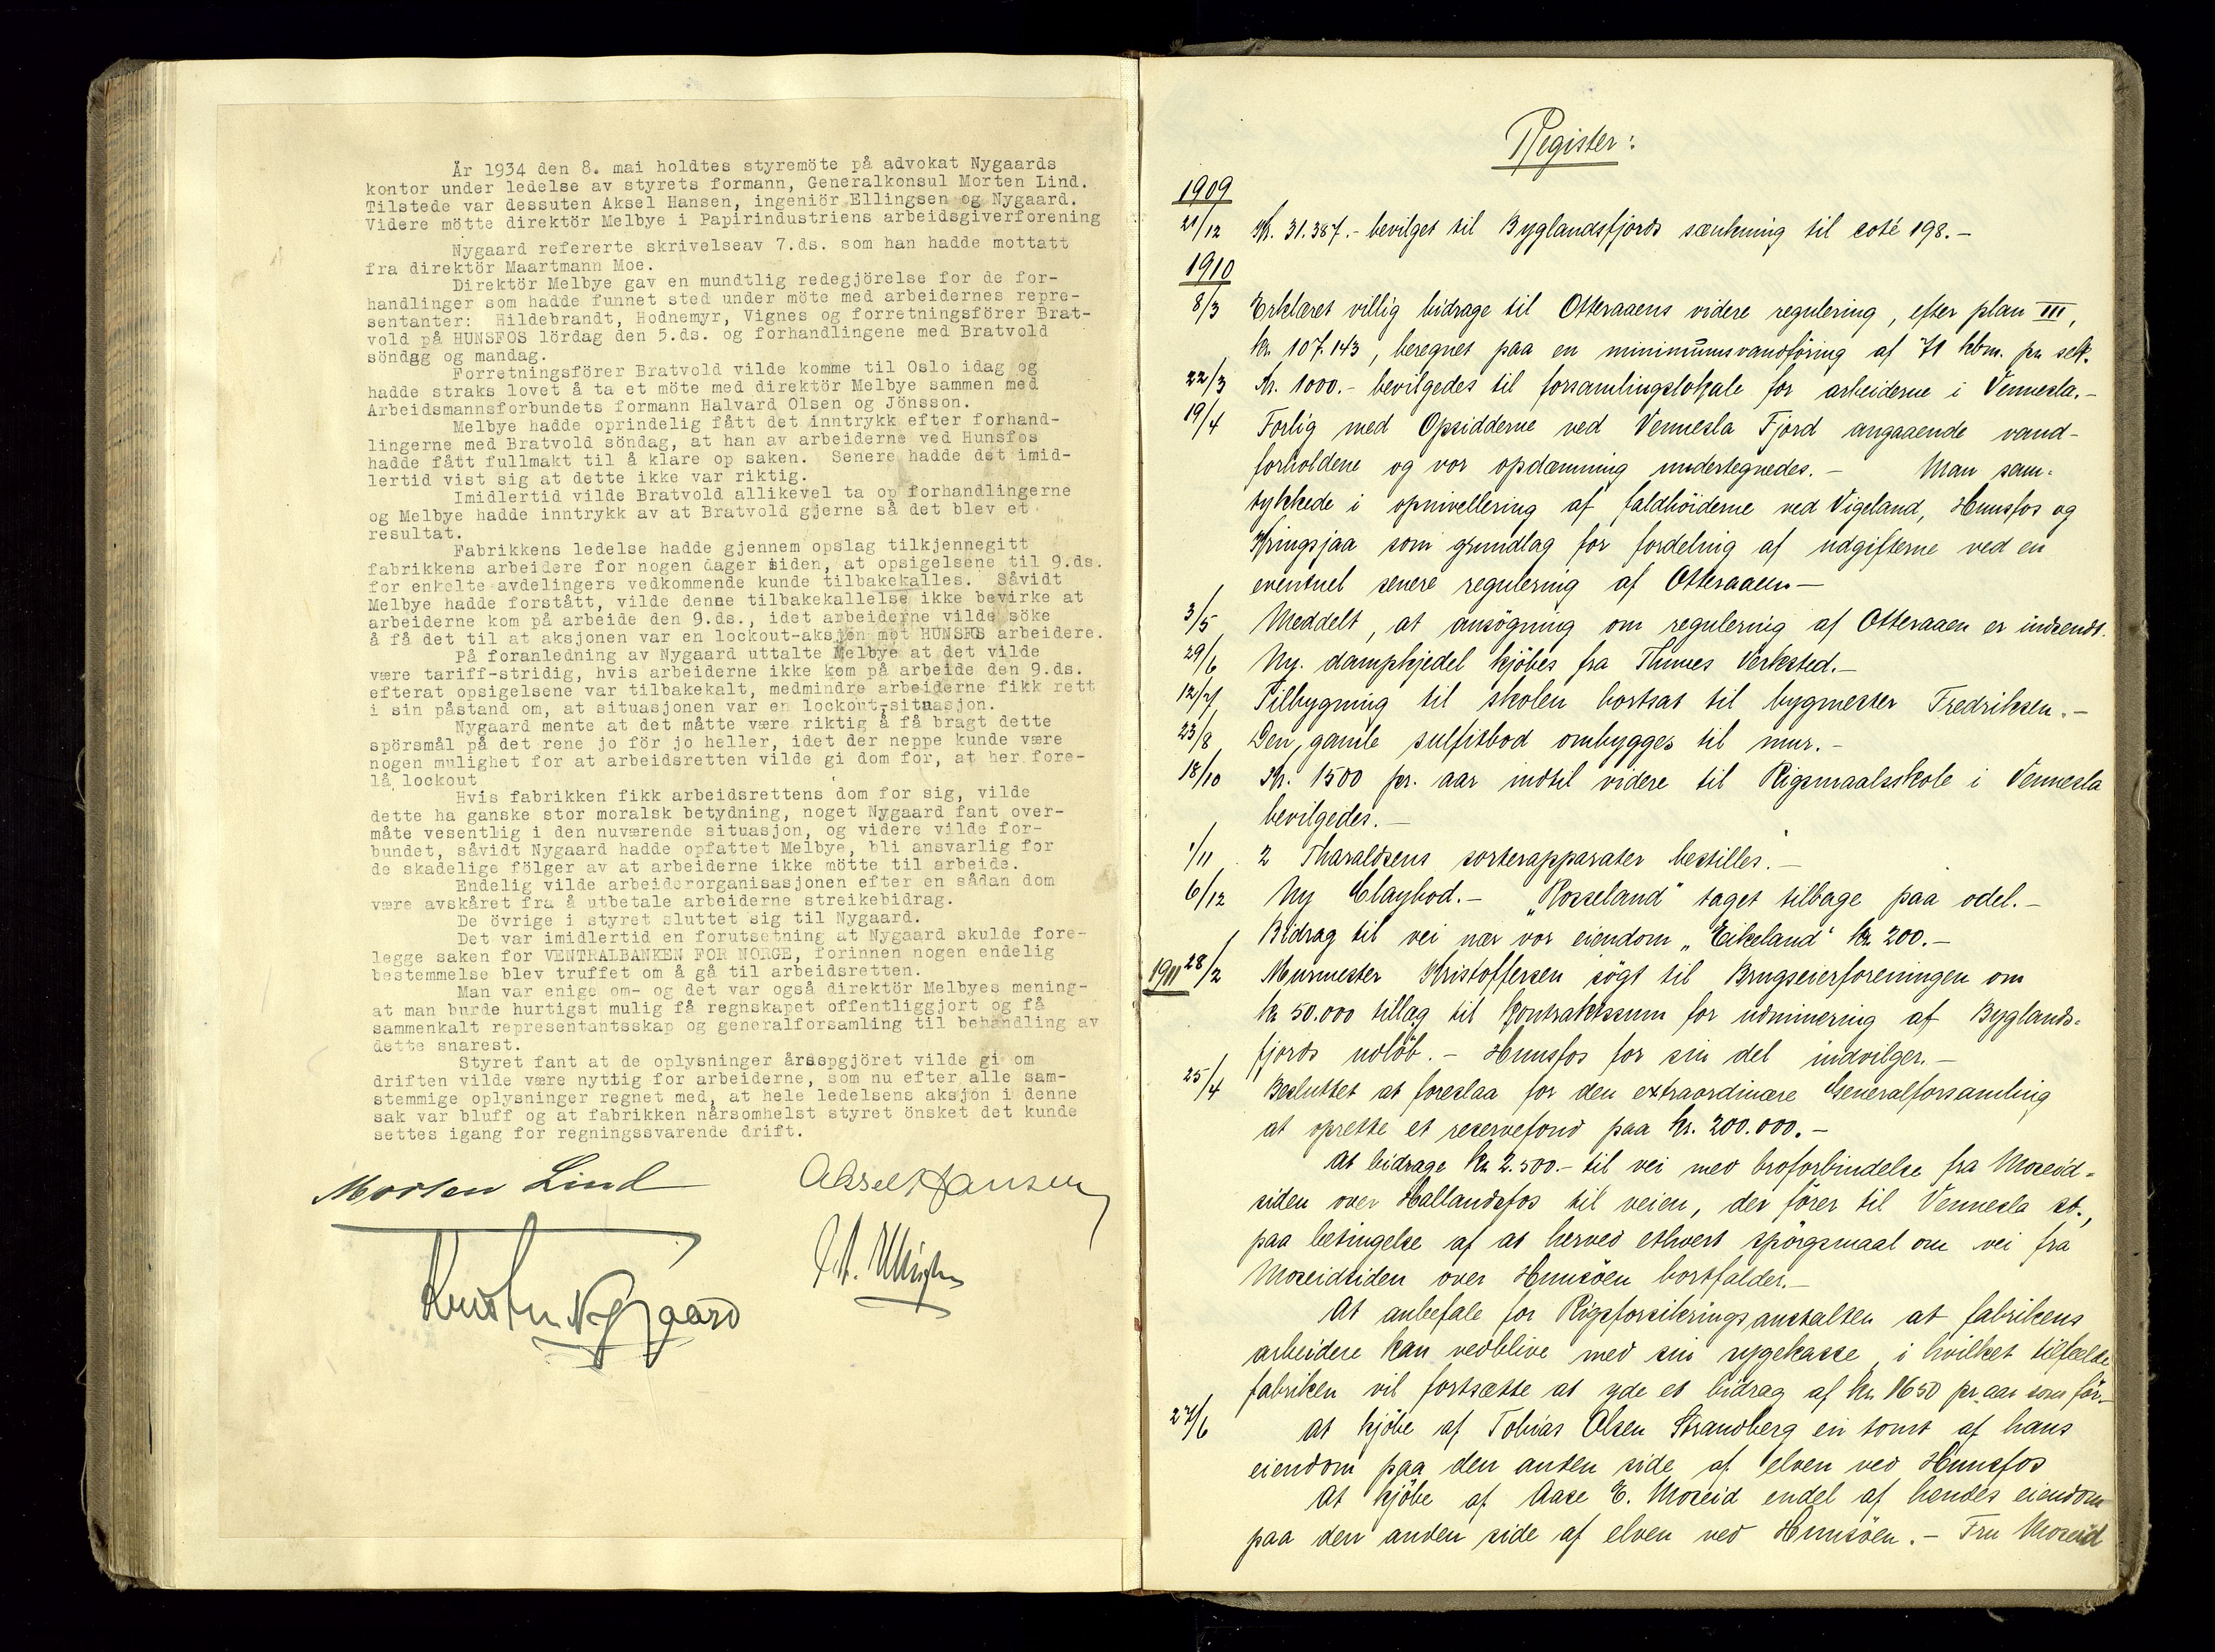 År 1934 den 8. mai holdtes styremöte på advokat Nygaards
kontor under ledelse av styrets formann, Generalkonsul Morten Lind.
Tilstede var dessuten Aksel Hansen, ingeniör Ellingsen og Nygaard.
Videre mötte direktör Melbye i Papirindustriens arbeidsgiverforening
Nygaard refererte skrivelseav 7.ds. som han hadde mottatt
fra direktör Maartmann Moe.
Direktör Melbye gav en mundtlig redegjörelse for de for-
handlinger som hadde funnet sted under möte med arbeidernes repre-
sentanter: Hildebrandt, Hodnemyr, Vignes og forretningsförer Brat-
vold på HUNSFOS lördag den 5.ds. og forhandlingene med Bratvold
söndag og mandag.
Forretningsförer Bratvold vilde komme til Oslo idag og
hadde straks lovet å ta et möte med direktör Melbye sammen med
Arbeidsmannsforbundets formann Halvard Olsen og Jönsson.
Melbye hadde oprindelig fått det inntrykk efter forhand-
lingerne med Bratvold söndag, at han av arbeiderne ved Hunsfos
hadde fått fullmakt til å klare op saken. Senere hadde det imid-
lertid vist sig at dette ikke var riktig.
Imidlertid vilde Bratvold allikevel ta op forhandlingerne
og Melbye hadde inntrykk av at Bratvold gjerne så det blev et
resultat.
Fabrikkens ledelse hadde gjennem opslag tilkjennegitt
fabrikkens arbeidere for nogen dager siden, at opsigelsene til 9.ds.
for enkelte avdelingers vedkommende kunde tilbakekalles. Såvidt
Melbye hadde forstått, vilde denne tilbakekallelse ikke bevirke at
arbeiderne kom på arbeide den 9.ds., idet arbeiderne vilde söke
å få det til at aksjonen var en lockout-aksjon mot HUNSFOS arbeidere.
På foranledning av Nygaard uttalte Melbye at det vilde
være tariff-stridig, hvis arbeiderne ikke kom på arbeide den 9.ds.
efterat opsigelsene var tilbakekalt, medmindre arbeiderne fikk rett
i sin påstand om, at situasjonen var en lockout-situasjon.
Nygaard mente at det måtte være riktig å få bragt dette
spörsmål på det rene jo för jo heller, idet der neppe kunde være
nogen mulighet for at arbeidsretten vilde gi dom for, at her fore-
lå lockout
Hvis fabrikken fikk arbeidsrettens dom for sig, vilde
dette ha ganske stor moralsk betydning, noget Nygaard fant over-
måte vesentlig i den nuværende situasjon, og videre vilde for-
bundet, såvidt Nygaard hadde opfattet Melbye, bli ansvarlig for
de skadelige fölger av at arbeiderne ikke mötte til arbeide.
Endelig vilde arbeiderorganisasjonen efter en sådan dom
være avskåret fra å utbetale arbeiderne streikebidrag.
De övrige i styret sluttet sig til Nygaard.
Det var imidlertid en forutsetning at Nygaard skulde fore-
legge saken for VENTRALBANKEN FOR NORGE, forinnen nogen endelig
bestemmelse blev truffet om å gå til arbeidsretten.
Man var enige om- og det var også direktör Melbyes mening-
at man burde hurtigst mulig få regnskapet offentliggjort og få
sammenkalt representantsskap og generalforsamling til behandling av
dette snarest.
Styret fant at de oplysninger årsopgjöret vilde gi om
driften vilde være nyttig for arbeiderne, som nu efter alle sam-
stemmige oplysninger regnet med, at hele ledelsens aksjon i denne
sak var bluff og at fabrikken nårsomhelst styret önsket det kunde
settes igang for regningssvarende drift.
Morten Lind
Aksel Hansen
Nygaard
Register:
1909
21/12 Kr. 31.387.- bevilget til Byglandsfjords sænkning til coté 198.-
1910
8/3 Erklæret villig bidrage til Otteraaens videre regulering, efter plan III,
kr. 107.143, beregnet paa en minimumsvandföring af 71 kbm. pr. sek.
22/3 Kr. 1000.- bevilgedes til forsamlingslokale for arbeiderne i Vennesla.-
19/4 Forlig med Opsidderne ved Vennesla Fjord angaaende vand-
forholdene og vor opdæmning undertegnedes.- Man sam-
tykkede i opnivellering af faldhöiderne ved Vigeland, Hunsfos og
Kringsjaa som grundlag for fordeling af udgifterne ved en
eventuel senere regulering af Otteraaen.-
3/5 Meddelt, at ansögning om regulering af Otteraaen er indsendt.
29/6 Ny. dampkjedel kjöbes fra Thunes Verksted.-
12/7 Tilbygning til skolen bortsat til bygmester Fredriksen.-
23/8 Den gamle sulfitbod ombygges til mur.-
18/10 Kr. 1500 pr. aar indtil videre til Rigsmaalsskole i Vennesla
bevilgedes.-
1/11 2 Tharaldsens sorterapparater bestilles.-
6/12 Ny Claybod.- "Rosseland" taget tilbage paa odel.-
Bidrag til vei nær vor eiendom "Eikeland" kr. 200.-
1911 28/2 Murmester Kristoffersen sögt til Brugseierforeningen om
kr. 50.000 tillæg til kontraktssum for udminering af Byglands-
fjords udlöb.- Hunsfos for sin del indvilger.-
25/4 Besluttet at foreslaa for den extraordinære Generalforsamling
at oprette et reservefond paa kr. 200.000.-
At bidrage kr. 2.500.- til vei med broforbindelse fra Moseid-
siden over Hallandsfos til veien, der förer til Vennesla st.,
paa betingelse af at herved ethvert spörgsmaal om vei fra
Moseidsiden over Hunsöen bortfalder.-
At anbefale for Rigsforsikringsanstalten at fabrikens
arbeidere kan vedblive med sin sygekasse, i hvilket tilfælde
fabriken vil fortsætte at yde et bidrag af kr. 1650 pr. aar som för.-
27/6 At kjöbe af Tobias Olsen Strandberg en tomt af hans
eiendom paa den anden side af elven ved Hunsfos
At kjöbe af Aase E. Moseid endel af hendes eiendom
paa den anden side af elven ved Hunsöen.- Fru Moseid